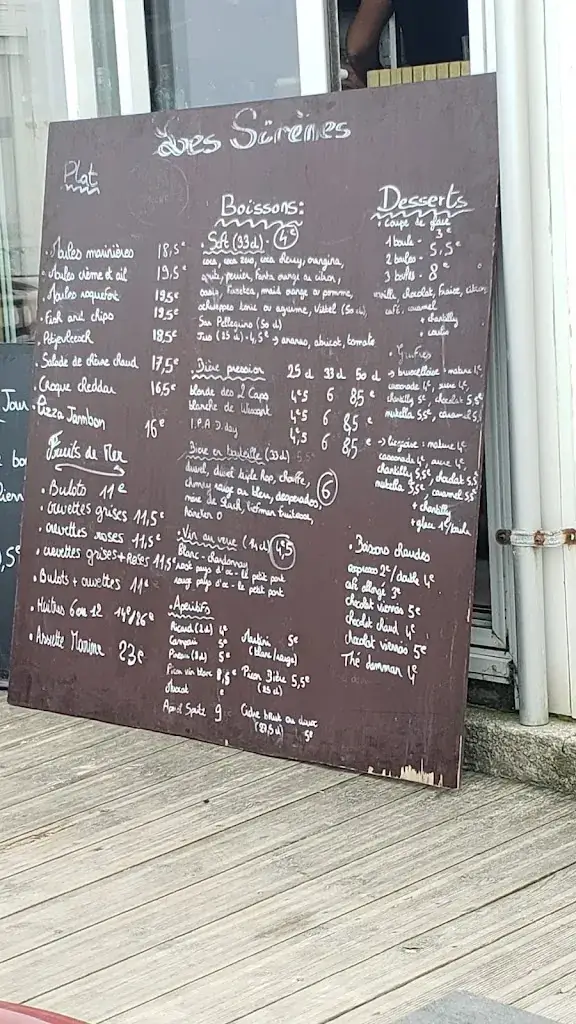 Les Sirènes
Plat
. Moules marinières 18,5€
. Moules crème et ail 19,5€
. Moules roquefort 19,5€
. Fish and chips 19,5€
18,5€
. Salade de chèvre chaud 17,5€
. Croque cheddar 16,5€
. Pizza Jambon 16€
Fruits de Mer
. Bulots 11€
. crevettes grises 11,5€
. crevettes roses 11,5€
. crevettes grises + Roses 11,5€
. Bulots + crevettes 11€
. Huîtres 6 ou 12 14€/26€
. Assiette Marine 23€
Boissons:
. Soft (33cl) - 4€
coca, coca zero, coca cherry, orangina,
perrier, Fanta orange ou citron,
oasis, Fuzetea, orange ou pomme,
schweppes tonic ou agrume, Vittel (50cl),
San Pellegrino (50cl)
Jus (25cl) - 4,5€ → ananas, abricot, tomate
. Bière pression 25cl 33cl 50cl
blonde des 2 Caps 4€5 6 8,5€
blanche de Wissant 4€5 6 8,5€
I.P.A. day 4,5 6 8,5€
. Bière en bouteille (33cl) 6
duvel, duvel triple hop, chouffe,
chimay rouge ou bleu, desperados,
Heineken 0
. Vin au verre (14cl) 4€5
Blanc - chardonnay
rosé pays d'oc - le petit pont
rouge pays d'oc - le petit pont
. Apéritifs
Ricard (2cl) 4€
Campari 5€
Pineau (8cl) 5€
Picon vin blanc
Aperol Spritz 9
Martini 5€
(blanc/rouge)
Picon Bière 5,5€
(25cl)
Cidre brut ou doux
(27,5cl) 5€
Desserts
. Coupe de glace
1 boule - 3€
2 boules - 5,5€
3 boules - 8€
vanille, chocolat, fraise, citron,
café, caramel
+ chantilly
+ coulis
. Gaufres
→ bruxelloise : nature 4€
cassonade 4€, sucre 4€,
chantilly 5€, chocolat 5,5€
nutella 5,5€, caramel 5,5
→ liégeoise : nature 4€
cassonade 4€, sucre 4€,
chantilly 5,5€, chocolat 5,5
nutella 5,5€, caramel 5,5€
+ chantilly
+ glace 1€/boule
. Boissons chaudes
expresso 2€/double 4€
café allongé 3€
chocolat viennois 5€
chocolat chaud 4€
chocolat viennois 5€
Thé damman 4€